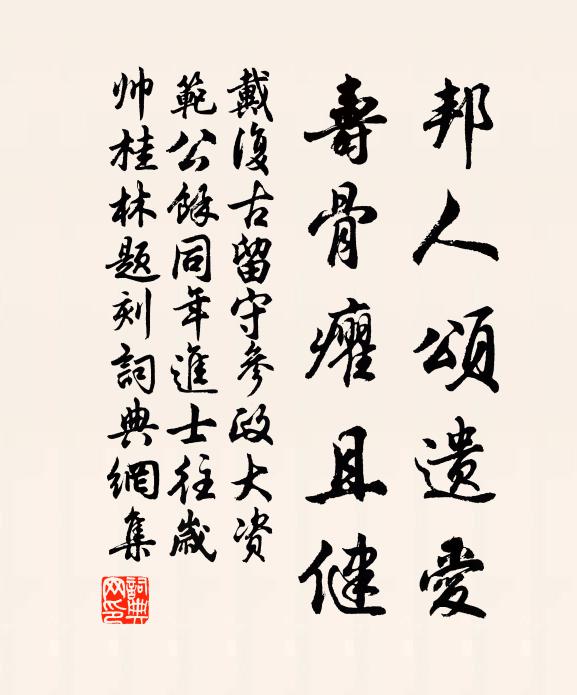 邦人頌遺愛
壽骨癯且健
戴復古留守參政大资
範公餘同年進士往歲
帅桂林題刻詞典網集
詞典
网印